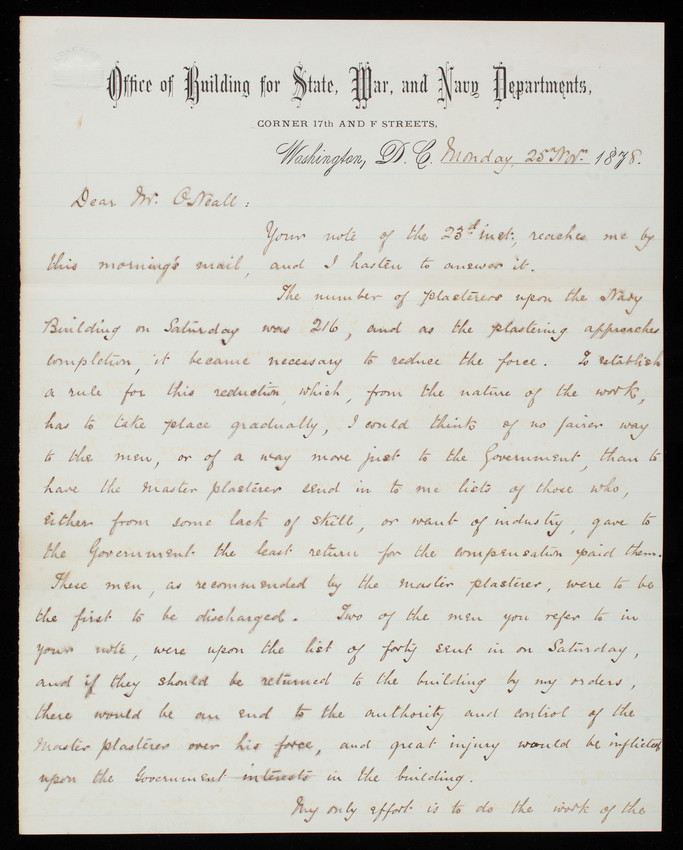 Office of Building for State, War, and Navy Departments,
CORNER 17th AND F STREETS,
Washington, D. C. Monday, 25 Novr. 1878.
Dear Mr. O'Neall:
Your note of the 23d inst., reaches me by
this morning's mail, and I hasten to answer it.
The number of plasterers upon the Navy
Building on Saturday was 216, and as the plastering approaches
completion, it became necessary to reduce the force. To establish
a rule for this reduction, which, from the nature of the work,
has to take place gradually, I could think of no fairer way
to the men, or of a way more just to the Government, than to
have the Master plasterer send in to me lists of those who,
either from some lack of skill, or want of industry, gave to
the Government the least return for the compensation paid them.
These men, as recommended by the master plasterer, were to be
the first to be discharged. Two of the men you refer to in
your note, were upon the list of forty sent in on Saturday,
and if they should be returned to the building by my orders,
there would be an end to the authority and control of the
Master plasterer over his force, and great injury would be inflicted
upon the Government interests in the building.
My only effort is to do the work of the